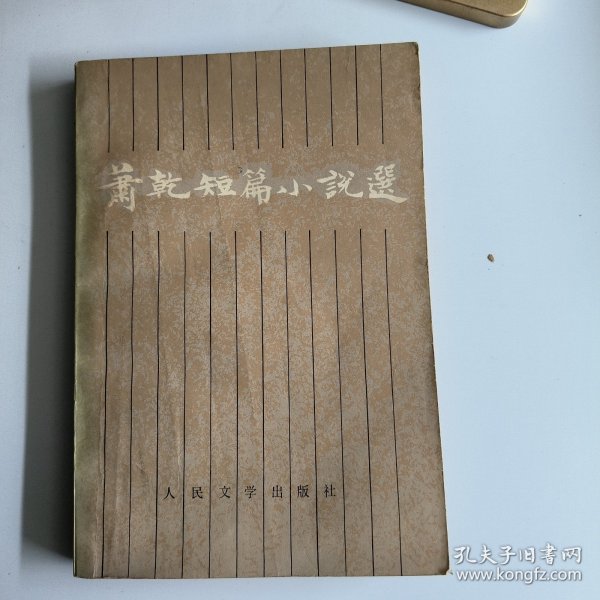 蕭乾短篇小説選
人民文学出版社
孔夫子旧书网
www.kongfz.com